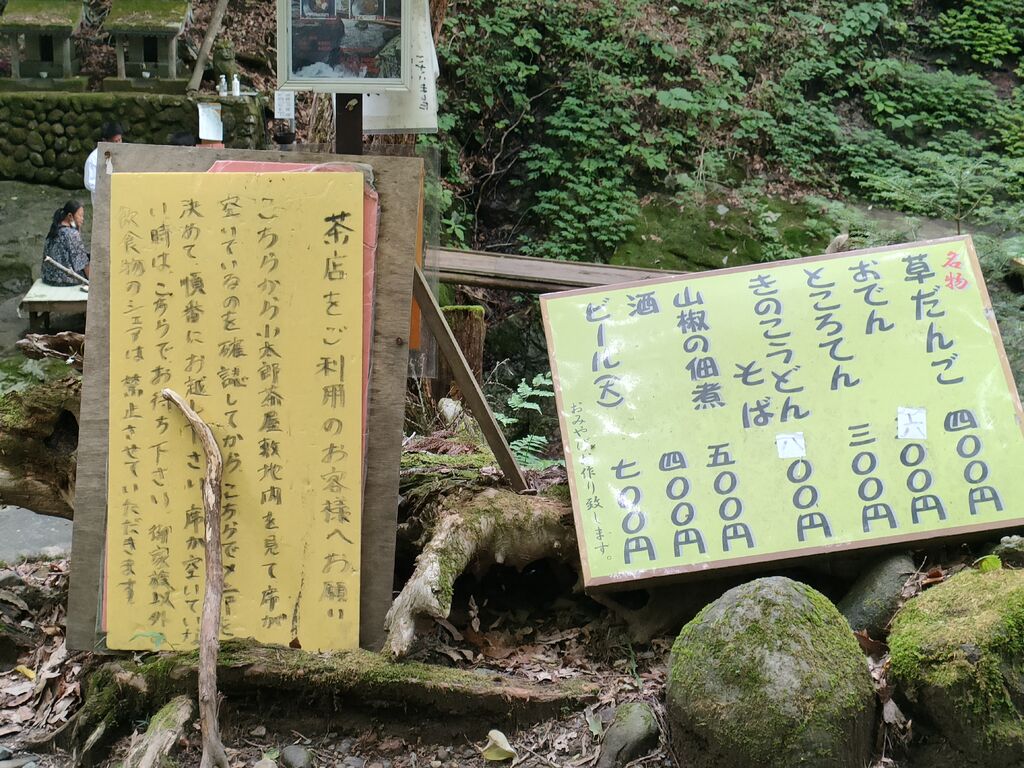 茶店をご利用のお客様へお願い
こちらから小太郎茶屋敷地内を見て席が
空いているのを確認してから こちらでメニーを
決めて順番にお越し下さい 席が空いていな
い時は、こちらでお待ち下さい、御家族以外
飲食物のシェアは禁止させていただきます
名物
草だんご 四〇〇円
おでん 六〇〇円
ところてん 三〇〇円
きのこうどん
そば 八〇〇円
山椒の佃煮 五〇〇円
酒 四〇〇円
ビール(大) 七〇〇円
おみやげ作り致します。